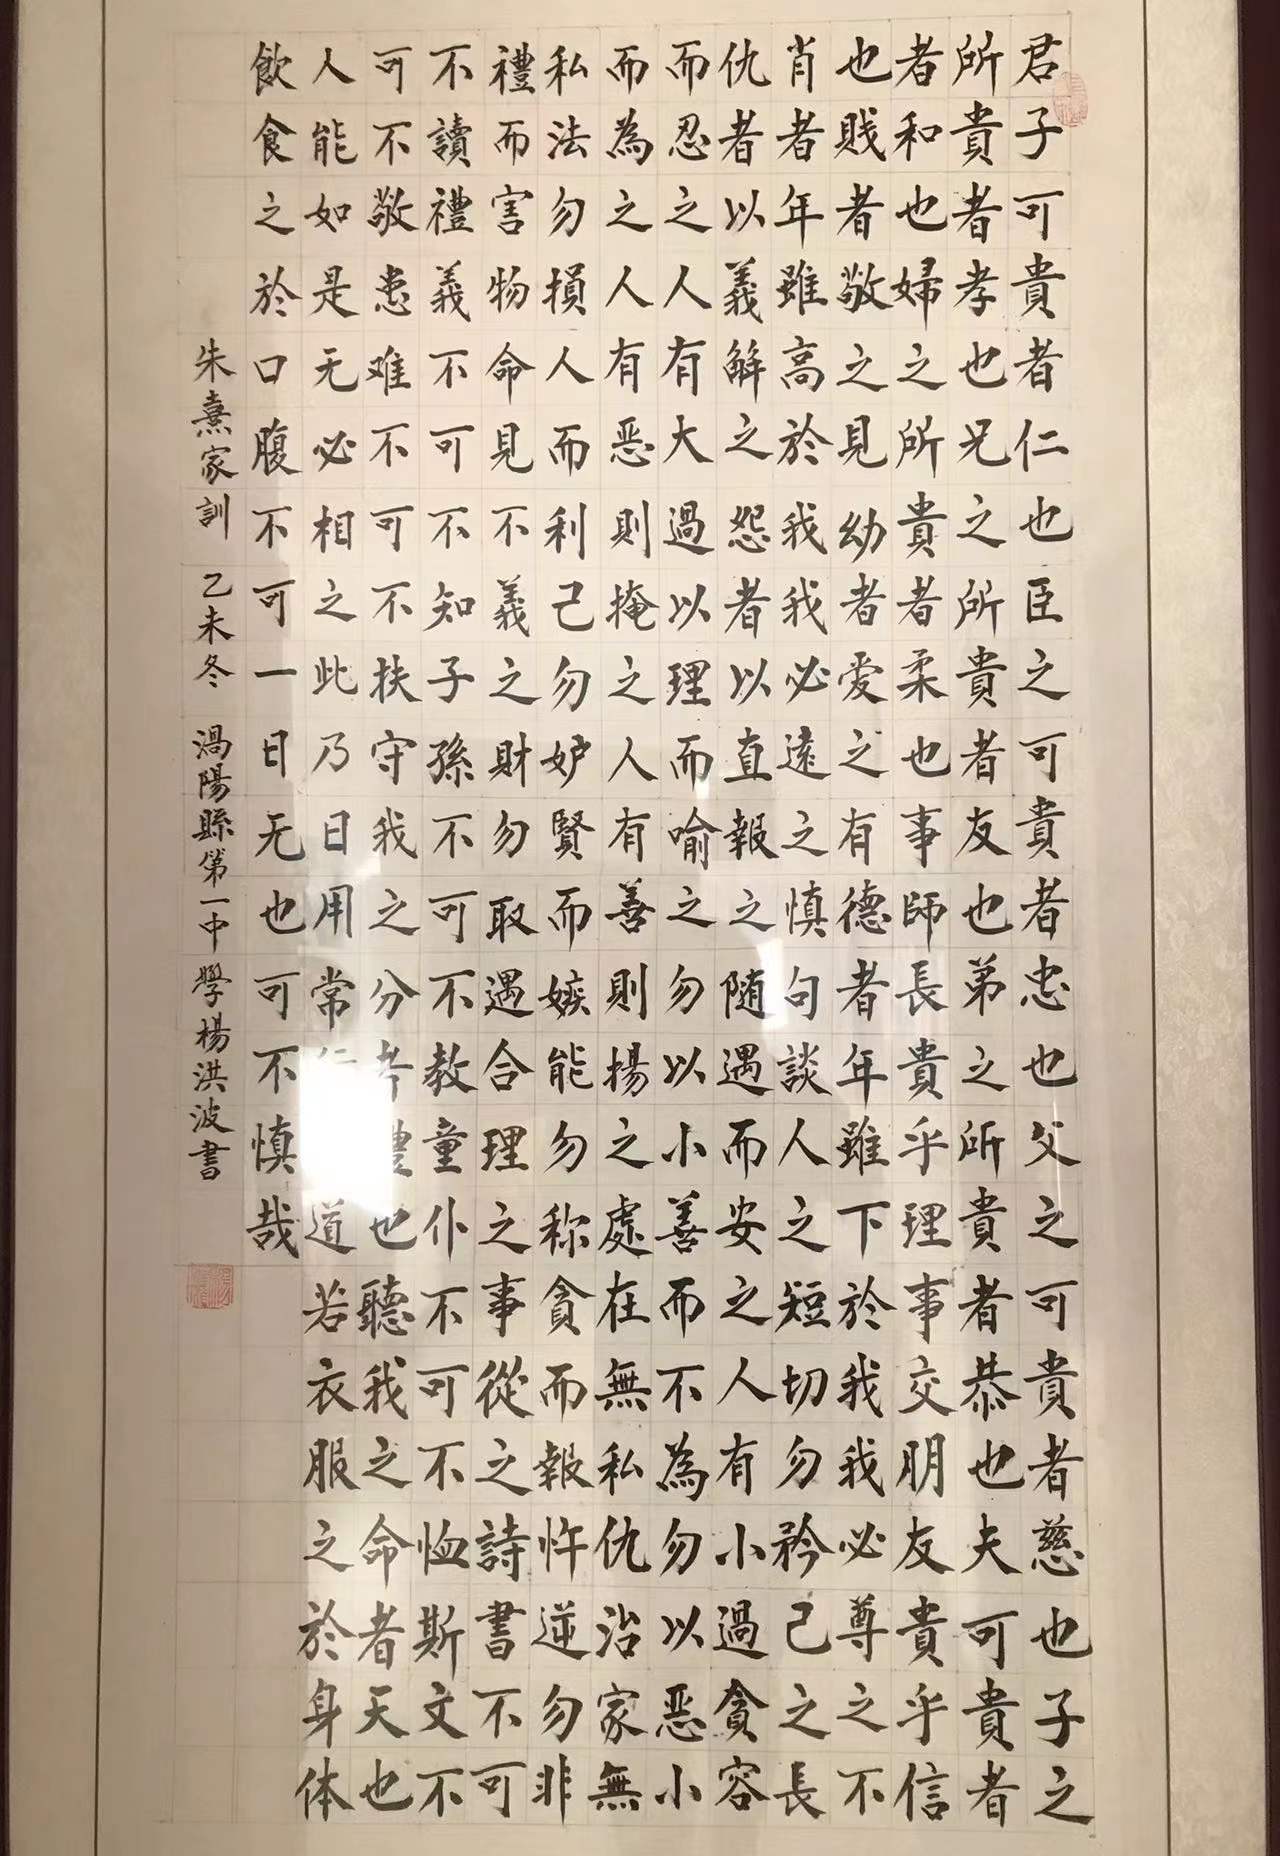 君子可貴者仁也臣之可貴者忠也父之可貴者慈也子之
所貴者孝也兄之所貴者友也弟之所貴者恭也夫可貴者
者和也婦之所貴者柔也事師長貴乎理事交朋友貴乎信
也賎者敬之見幼者爱之有德者年雖下於我我必尊之不
肖者年雖高於我我必遠之慎句談人之短切勿矜己之長
仇者以義解之怨者以直報之随遇而安之人有小過貪容
而忍之人有大過以理而喻之勿以小善而不為勿以恶小
而為之人有恶則掩之人有善則揚之處在無私仇治家無
私法勿損人而利己勿妒賢而嫉能勿称貪而報忤逆勿非
禮而害物命見不義之財勿取遇合理之事從之詩書不可
不讀禮義不可不知子孫不可不教童仆不可不恤斯文不
可不敬患难不可不扶守我之分禮也聽我之命者天也
人能如是无必相之此乃日用常行道若衣服之於身体
飲食之於口腹不可一日无也可不慎哉
朱熹家訓 乙未冬 渦陽縣第一中學楊洪波書